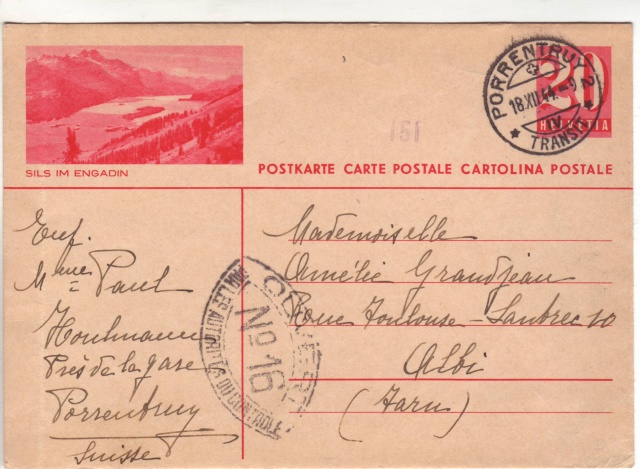 SILS IM ENGADIN
151
PORRENTRUY 2
18.XII.44.-9
IV
TRANSIT
30
HELVETIA
POSTKARTE CARTE POSTALE CARTOLINA POSTALE
Mademoiselle
Amélie Grandjean
Toulouse-Lautrec 10
Albi
(Tarn)
OUVERT
PAR LES AUTORITÉS DU CONTRÔLE
No 16
Mme Paul
Houlmann
Près de la gare
Porrentruy
Suisse